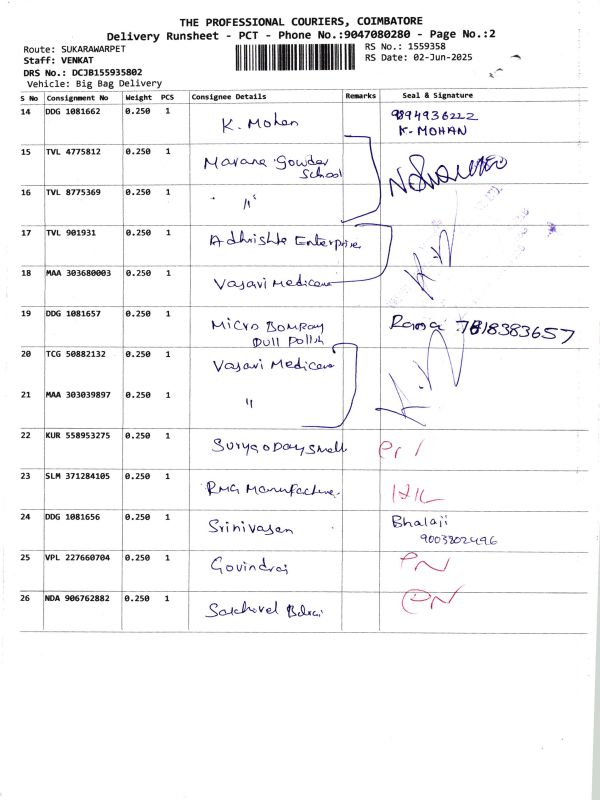 THE PROFESSIONAL COURIERS, COIMBATORE
Delivery Runsheet - PCT - Phone No.:9047080280 - Page No.:2
Route: SUKARAWARPET
RS No.: 1559358
Staff: VENKAT
RS Date: 02-Jun-2025
DRS No.: DCJB155935802
Vehicle: Big Bag Delivery
S No Consignment No Weight PCS Consignee Details Remarks Seal & Signature
14 DDG 1081662 0.250 1 K. Mohan 9894936222
K-MOHAN
15 TVL 4775812 0.250 1 Marana Gowder
School
16 TVL 8775369 0.250 1 "
17 TVL 901931 0.250 1 Adhrishta Enterprise
18 MAA 303680003 0.250 1 Vasavi Medicare
19 DDG 1081657 0.250 1 Micro Bompay Rama 7818383657
Dull Polish
20 TCG 50882132 0.250 1 Vasavi Medicare
21 MAA 303039897 0.250 1 "
22 KUR 558953275 0.250 1
23 SLM 371284105 0.250 1 RMG Manufacture.
24 DDG 1081656 0.250 1 Srinivasan Bhalaji
9003802496
25 VPL 227660704 0.250 1 Govindraj PN
26 NDA 906762882 0.250 1 PN